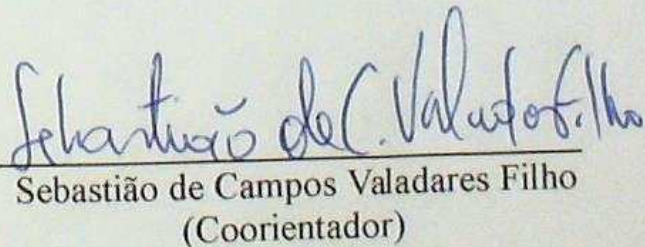 Sebastião de C. Valadares Filho
Sebastião de Campos Valadares Filho
(Coorientador)